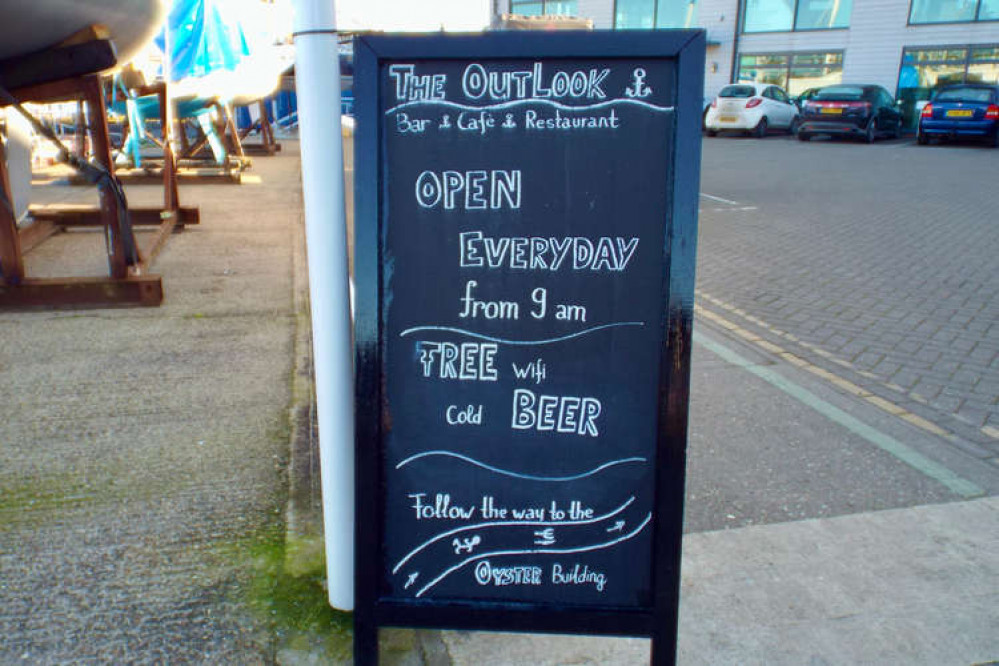 The OutLook
Bar & Cafè & Restaurant
OPEN
EVERYDAY
from 9 am
FREE wifi
Cold BEER
Follow the way to the
OYSTER Building